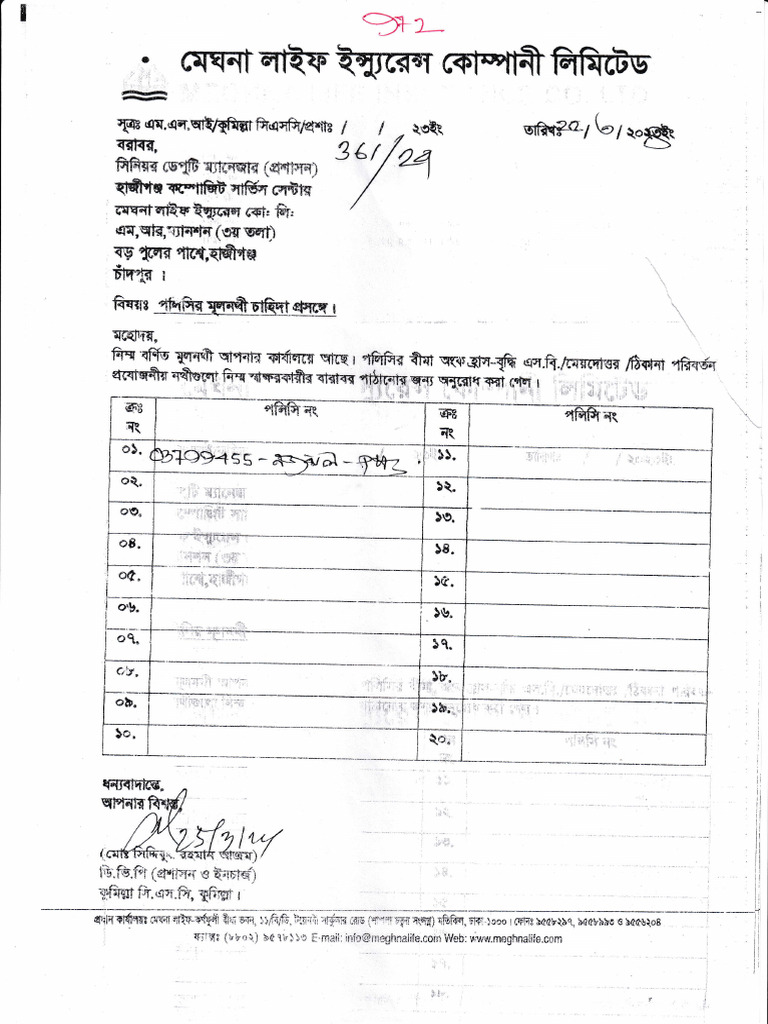 ৯৭২
মেঘনা লাইফ ইন্স্যুরেন্স কোম্পানী লিমিটেড
সূত্রঃ এম.এল.আই/কুমিল্লা সিএসসি/প্রশাঃ / / ২৩ইং তারিখঃ
361/24
বরাবর,
সিনিয়র ডেপুটি ম্যানেজার (প্রশাসন)
হাজীগঞ্জ কম্পোজিট সার্ভিস সেন্টার
মেঘনা লাইফ ইন্স্যুরেন্স কোঃ লিঃ
এম,আর,ম্যানশন (৩য় তলা)
বড় পুলের পার্শ্বে,হাজীগঞ্জ
চাঁদপুর ।
বিষয়ঃ পলিসির মূলনথী চাহিদা প্রসঙ্গে ।
মহোদয়,
নিম্ন বর্ণিত মূলনথী আপনার কার্যালয়ে আছে। পলিসির বীমা অংক হ্রাস-বৃদ্ধি এস.বি./মেয়াদোত্তর /ঠিকানা পরিবর্তন
প্রযোজনীয় নথীগুলো নিম্ন স্বাক্ষরকারীর বারাবর পাঠানোর জন্য অনুরোধ করা গেল ।
ক্রঃ নং পলিসি নং ক্রঃ নং পলিসি নং
০১. 03709455 ১১.
০২. ১২.
০৩. ১৩.
০৪. ১৪.
০৫. ১৫.
০৬. ১৬.
০৭. ১৭.
০৮. ১৮.
০৯. ১৯.
১০. ২০.
ধন্যবাদান্তে,
আপনার বিশ্বস্ত,
25/3/24
(মোঃ সিদ্দিকুর রহমান আজম)
ডি.ভি.পি (প্রশাসন ও ইনচার্জ)
কুমিল্লা সি.এস.সি, কুমিল্লা ।
প্রধান কার্যালয়ঃ মেঘনা লাইফ-কর্ণফুলী বীমা ভবন, ১১/বি/ডি, টয়েনবী সার্কুলার রোড (শাপলা চত্বর সংলগ্ন) মতিঝিল, ঢাকা-১০০০। ফোনঃ ৯৫৫৮২৯৭, ৯৫৫৮৯৯৩ ও ৯৫৫৬২০৪
ফ্যাক্সঃ (৮৮০২) ৯৫৭৮১১৩ E-mail: info@meghnalife.com Web: www.meghnalife.com